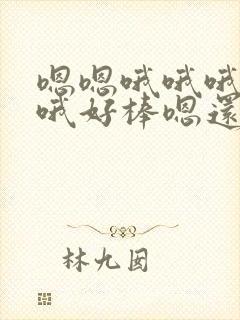 嗯嗯哦哦哦
哦好棒嗯還
林九囡